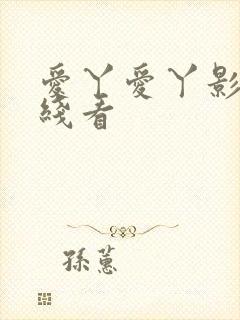 愛丫愛丫影
綫看
孫蕙